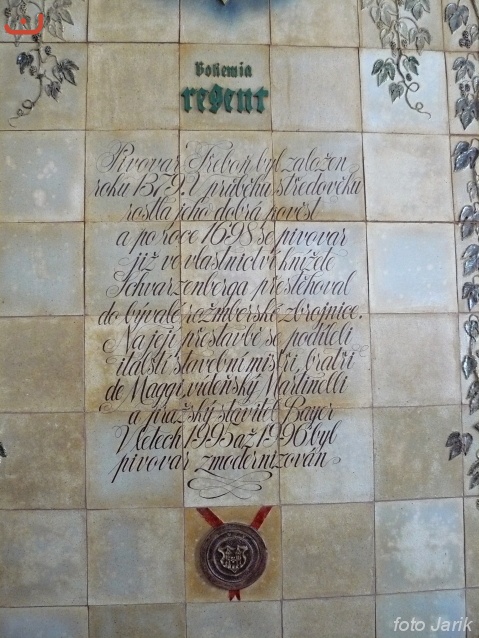 bohemia
regent
Pivovar Třeboň byl založen
roku 1379. V průběhu středověku
rostla jeho dobrá pověst
a po roce 1698 se pivovar
již ve vlastnictví knížete
Schwarzenberga přestěhoval
do bývalé rožmberské zbrojnice.
Na její přestavbě se podíleli
italští stavební mistři, bratři
de Maggi, vídeňský Martinelli
a pražský stavitel Bayer
V letech 1995 až 1996 byl
pivovar zmodernizován
foto Jarik